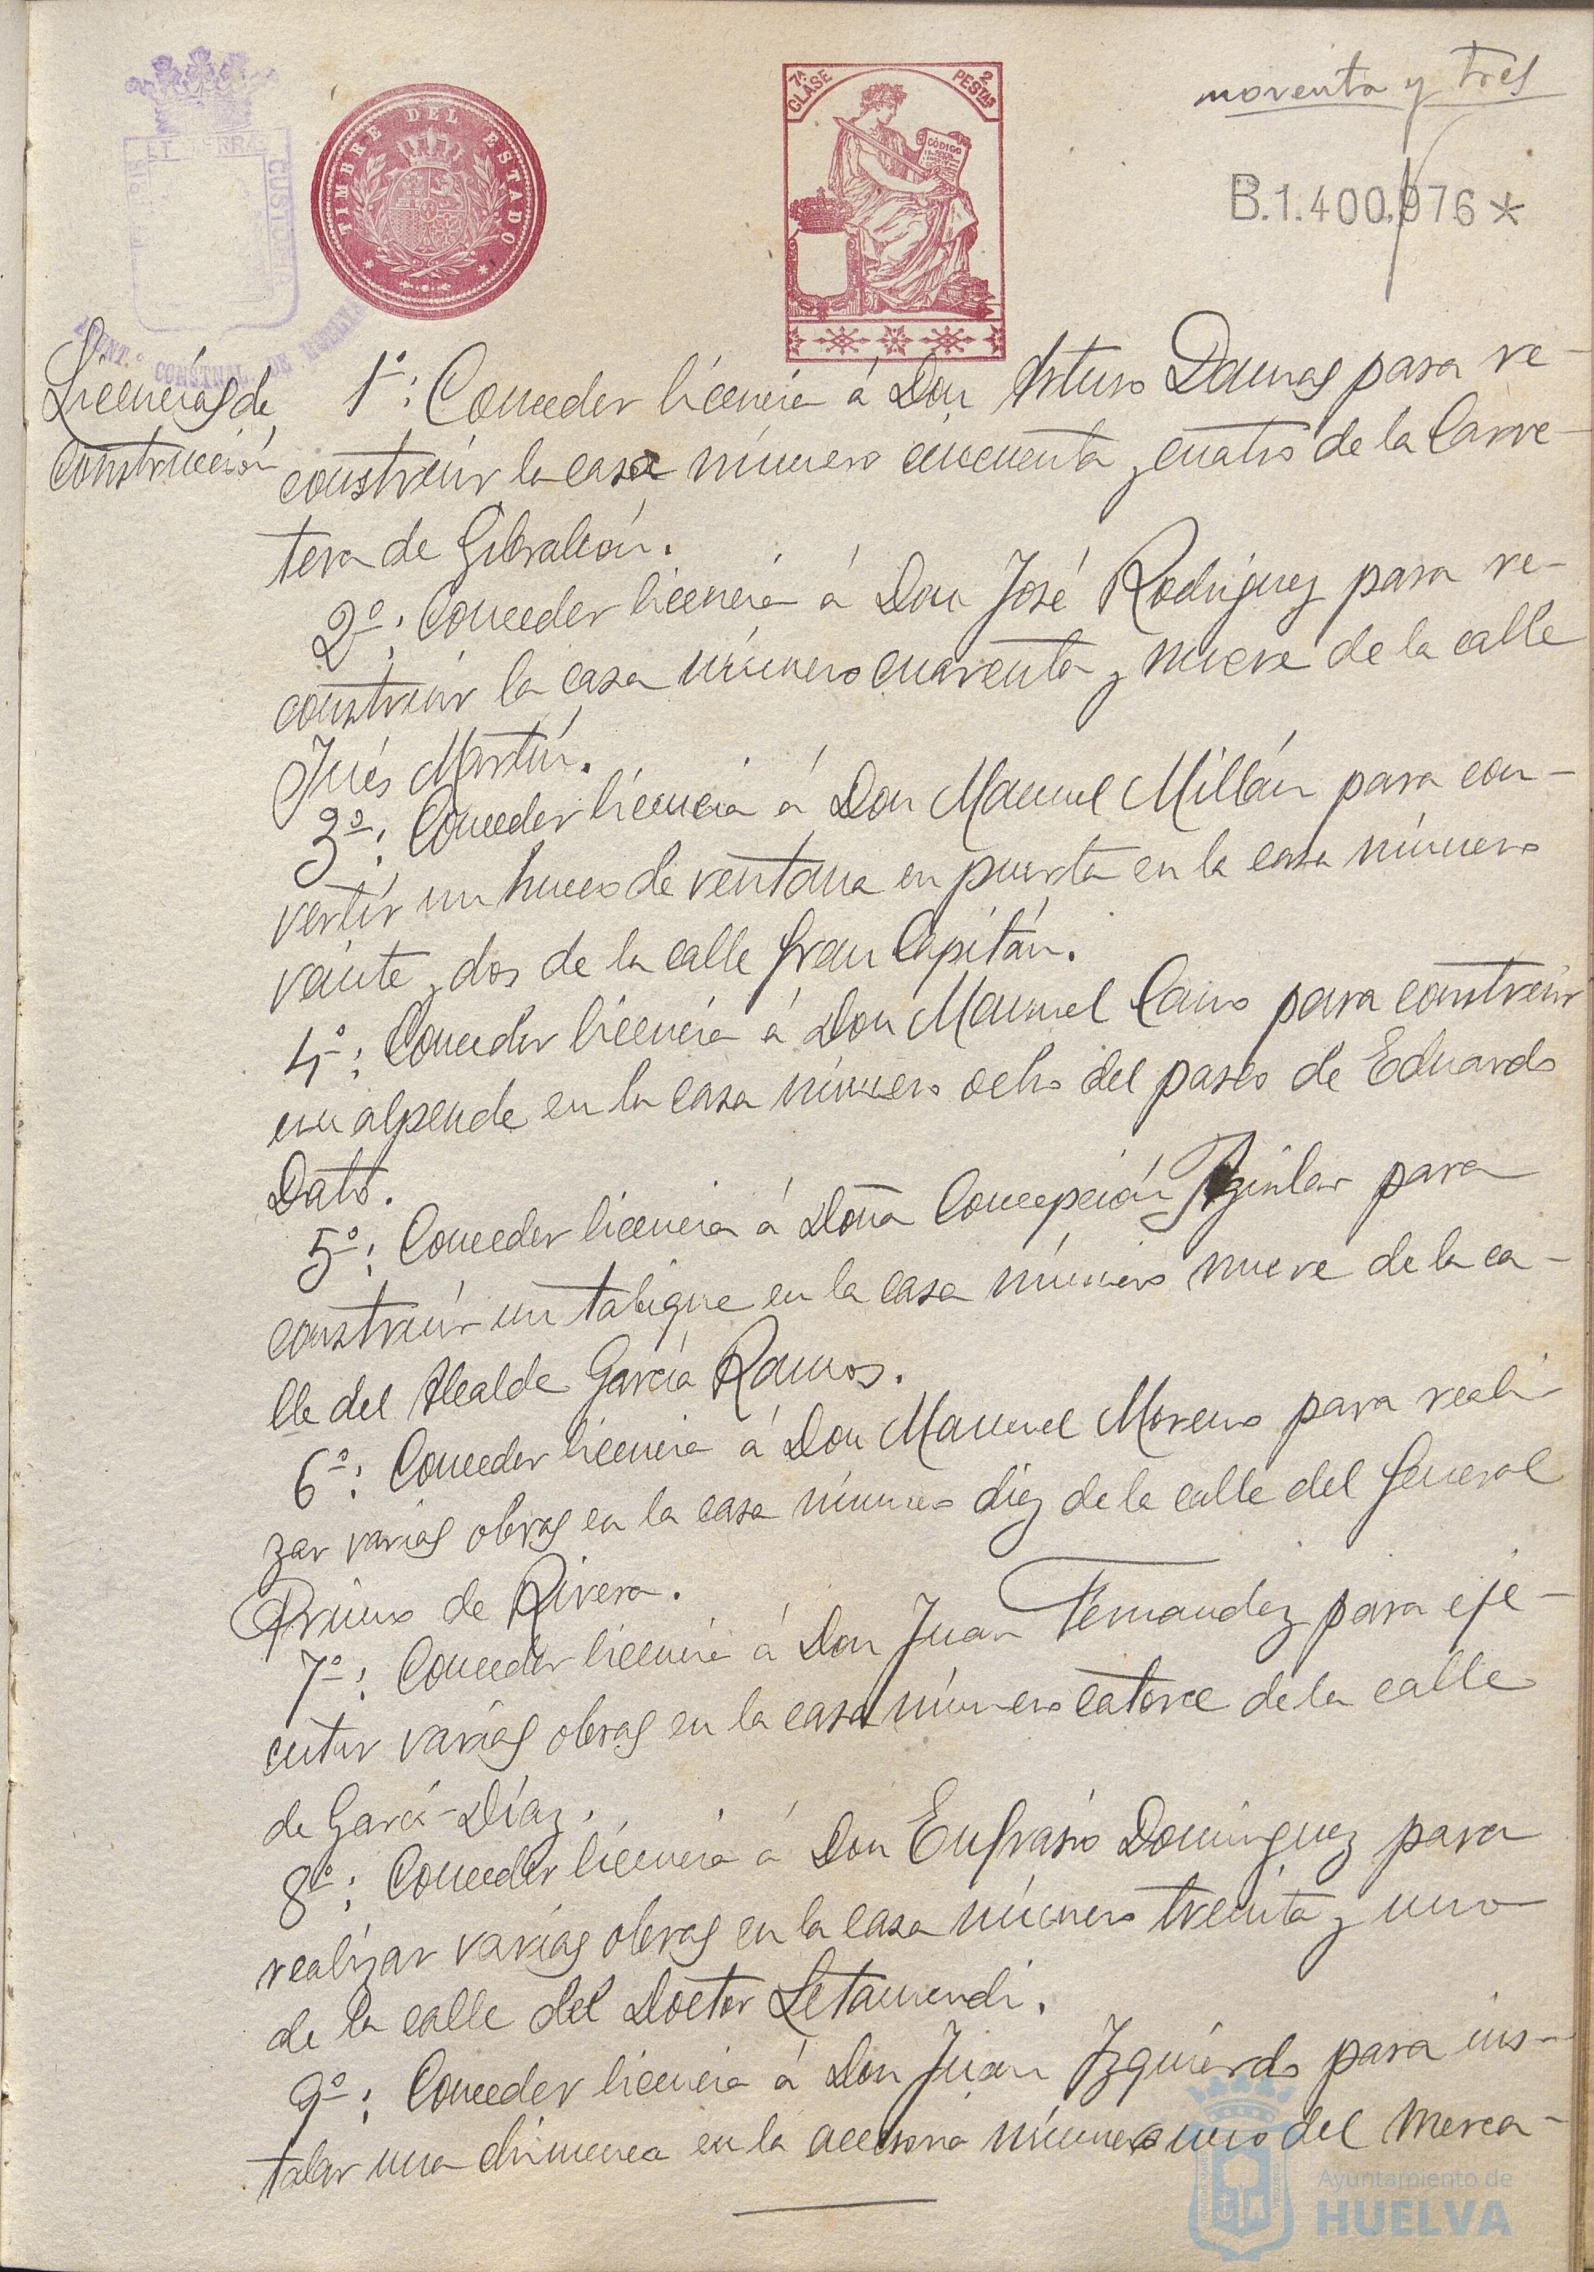 noventa y tres
TIMBRE DEL ESTADO
7ª CLASE
2 PESTAS
CÓDIGO
B.1.400.976*
CUSTODIA
AYUNT.º CONSTNAL DE HUELVA
Licencias de
construcción
1º: Conceder licencia á Don Arturo Damas para re-
construir la casa número cincuenta y cuatro de la Carre-
tera de Gibraleón.
2º: Conceder licencia á Don José Rodriguez para re-
construir la casa número cuarenta y nueve de la calle
Inés Martín.
3º: Conceder licencia á Don Manuel Millán para con-
vertir un hueco de ventana en puerta en la casa número
veinte y dos de la calle Gran Capitán.
4º: Conceder licencia á Don Manuel Cano para construir
un alpende en la casa número ocho del paseo de Eduardo
Dato.
5º: Conceder licencia á Doña Concepción Aguilar para
construir un tabique en la casa número nueve de la ca-
lle del Alcalde García Ramos.
6º: Conceder licencia á Don Manuel Moreno para reali-
zar varias obras en la casa número diez de la calle del General
Primo de Rivera.
7º: Conceder licencia á Don Juan Fernandez para eje-
cutar varias obras en la casa número catorce de la calle
de Garci-Díaz.
8º: Conceder licencia á Don Eufrasio Dominguez para
realizar varias obras en la casa número treinta y uno
de la calle del Doctor Letamendi.
9º: Conceder licencia á Don Juan Izquierdo para ins-
talar una chimenea en la accesoria número uno del merca-
Ayuntamiento de
HUELVA